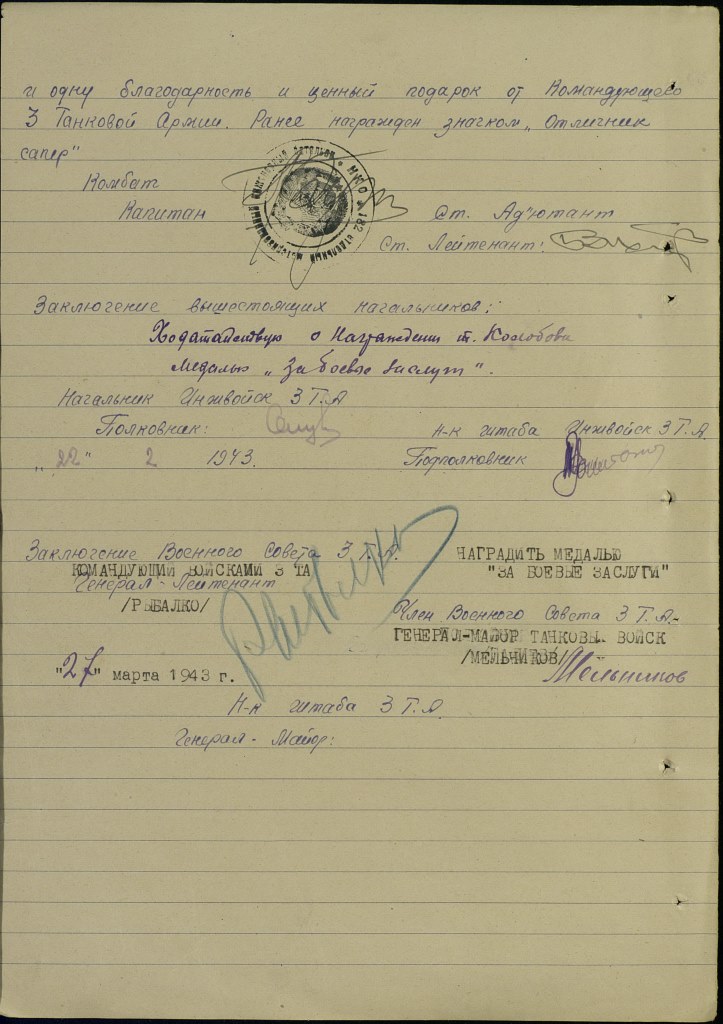 и одну благодарность и ценный подарок от Командующего
3 Танковой Армии. Ранее награжден значком „Отличник
сапер"
НКО * 182 отдельный моторизованный инженерный батальон
Комбат
Капитан
Ст. Ад'ютант
Ст. Лейтенант:
Заключение вышестоящих начальников:
Ходатайствую о Награждении т.
Медалью „За боевые заслуги".
Начальник Инжвойск 3 Т.А
Полковник:
Н-к штаба Инжвойск 3 Т.А.
„22" 2 1943.
Подполковник
Заключение Военного Совета 3 Т.А.
НАГРАДИТЬ МЕДАЛЬЮ
КОМАНДУЮЩИЙ ВОЙСКАМИ 3 ТА
"ЗА БОЕВЫЕ ЗАСЛУГИ"
Генерал-Лейтенант
/РЫБАЛКО/
Член Военного Совета 3 Т.А.-
ГЕНЕРАЛ-МАЙОР ТАНКОВЫХ ВОЙСК
/МЕЛЬНИКОВ/
Мельников
"27" марта 1943 г.
Н-к штаба 3 Т.А
Генерал-Майор: